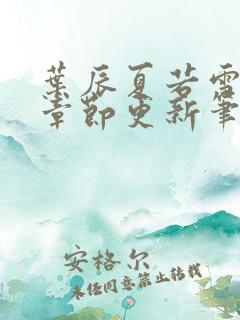 葉辰夏若雪
章節更新筆
安格尔
未经同意禁止转载